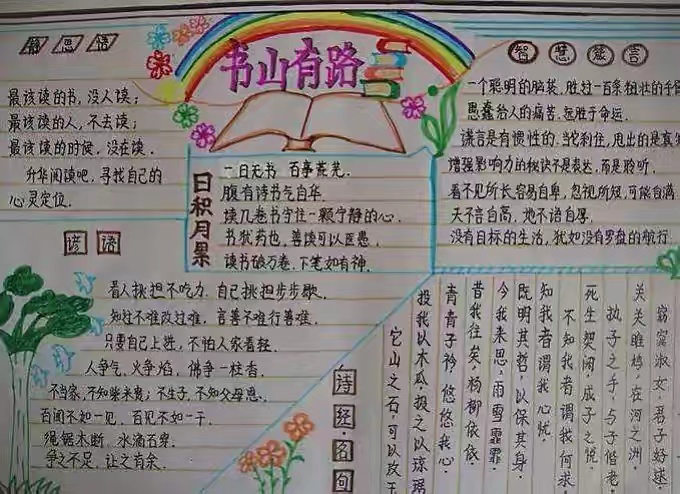 书山有路
静思语
最该读的书,没人读;
最该读的人,不去读;
最该读的时候,没在读.
升华阅读吧,寻找自己的
心灵定位.
日积月累
一日无书 百事荒芜.
腹有诗书气自华.
读几卷书守住一颗宁静的心.
书犹药也,善读可以医愚.
读书破万卷,下笔如有神.
智慧箴言
一个聪明的脑袋,胜过一百条粗壮的手
愚蠢给人的痛苦,远胜于命运.
谎言是有惯性的.当轮刹住,甩出的是真
增强影响力的秘诀不是表达,而是聆听.
看不见所长,容易自卑,忽视所短,可能自满
天不言自高,地不语自厚.
没有目标的生活,犹如没有罗盘的航行.
谚语
看人挑担不吃力,自己挑担步步歇.
知过不难改过难,言善不难行善难.
只要自己上进,不怕人家看轻.
人争气,火争焰,佛争一柱香.
不当家,不知柴米贵;不生子,不知父母恩.
百闻不如一见,百见不如一干.
绳锯木断,水滴石穿.
争之不足,让之有余.
诗经·名句
窈窕淑女,君子好逑.
关关雎鸠,在河之洲.
执子之手,与子偕老
死生契阔,成子之悦
不知我者谓我何求
知我者谓我心忧
既明其哲,以保其身.
今我来思,雨雪霏霏
昔我往矣,杨柳依依.
青青子衿,悠悠我心.
投我以木瓜,投之以琼琚
它山之石,可以攻玉